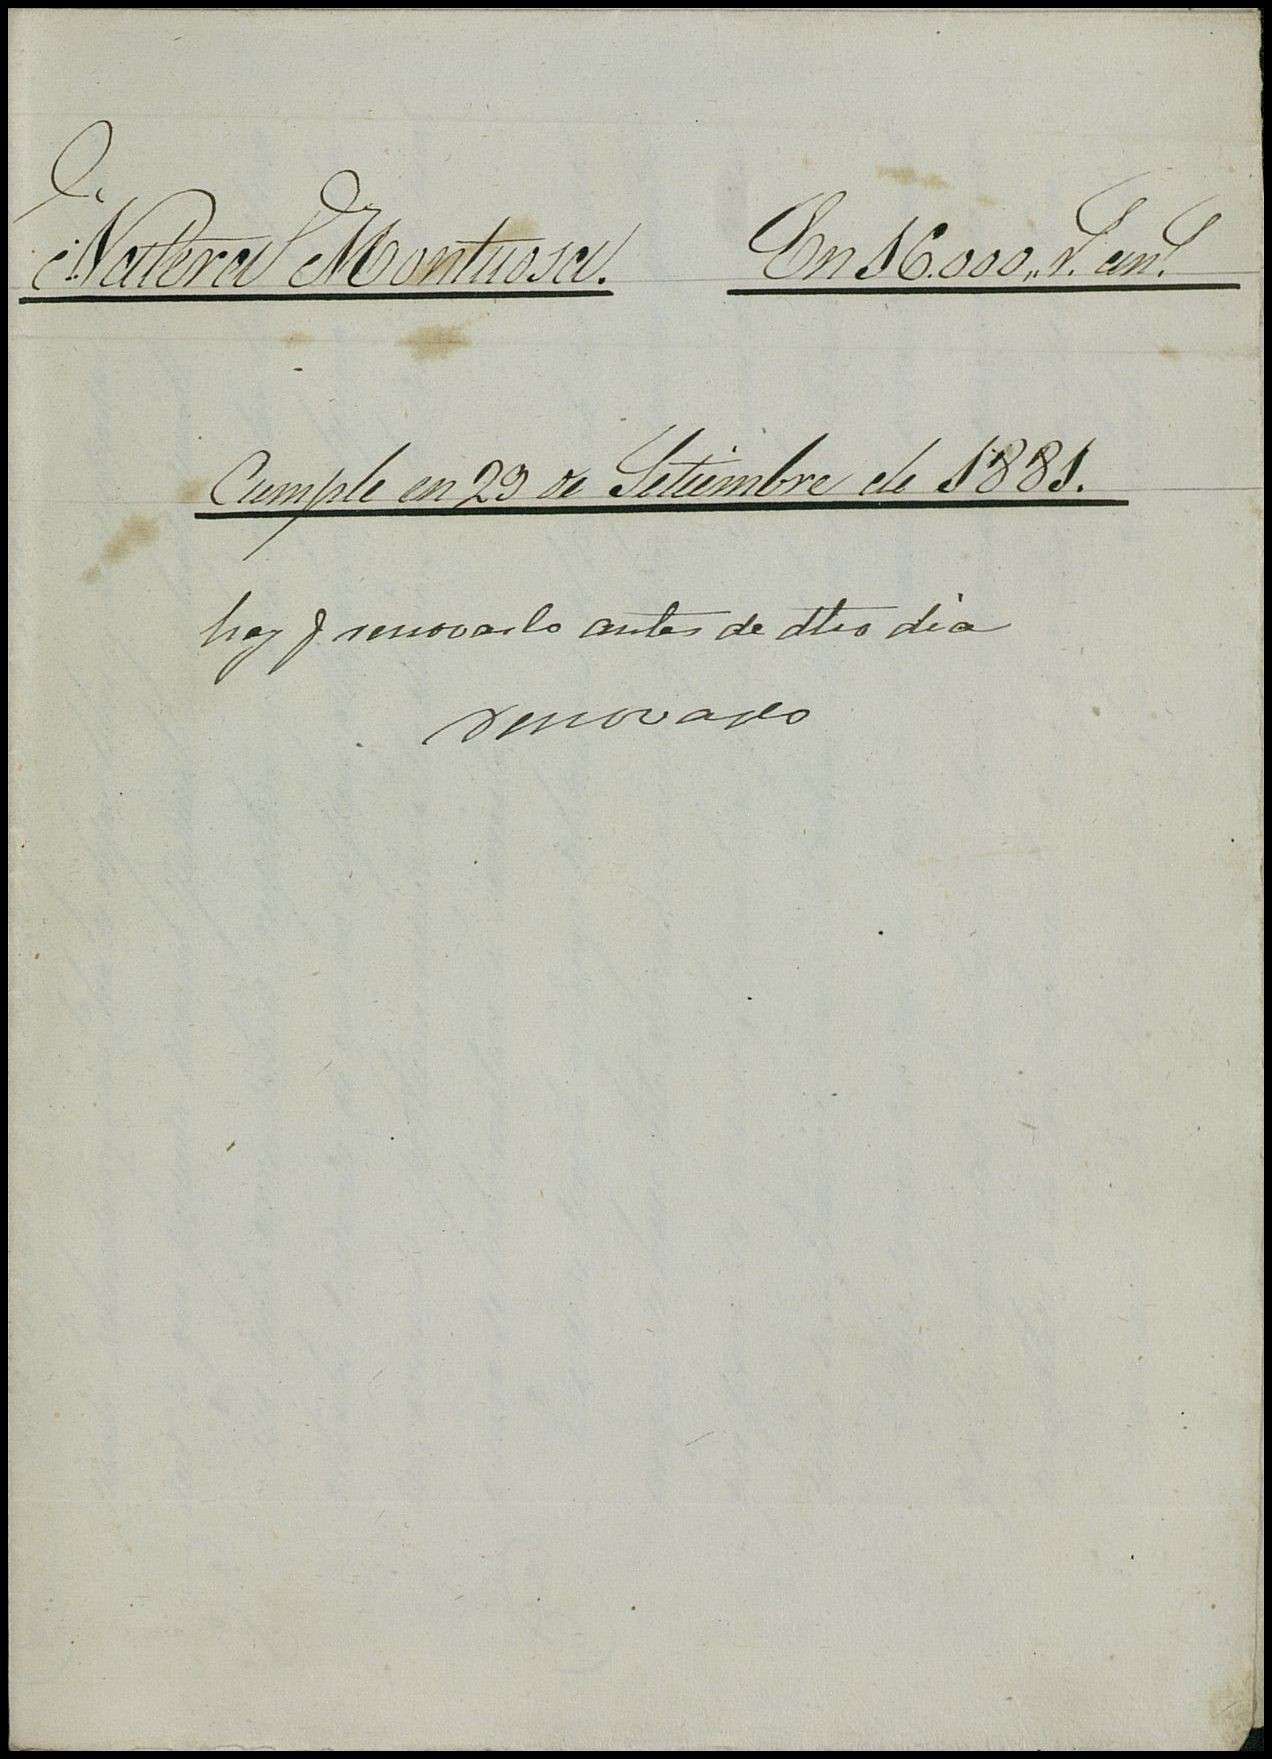 Natera Montuosa. En 16.000,, r.s an.s
Cumple en 29 de Setiembre de 1881.
hay q renovarlo antes de dho dia
renovado